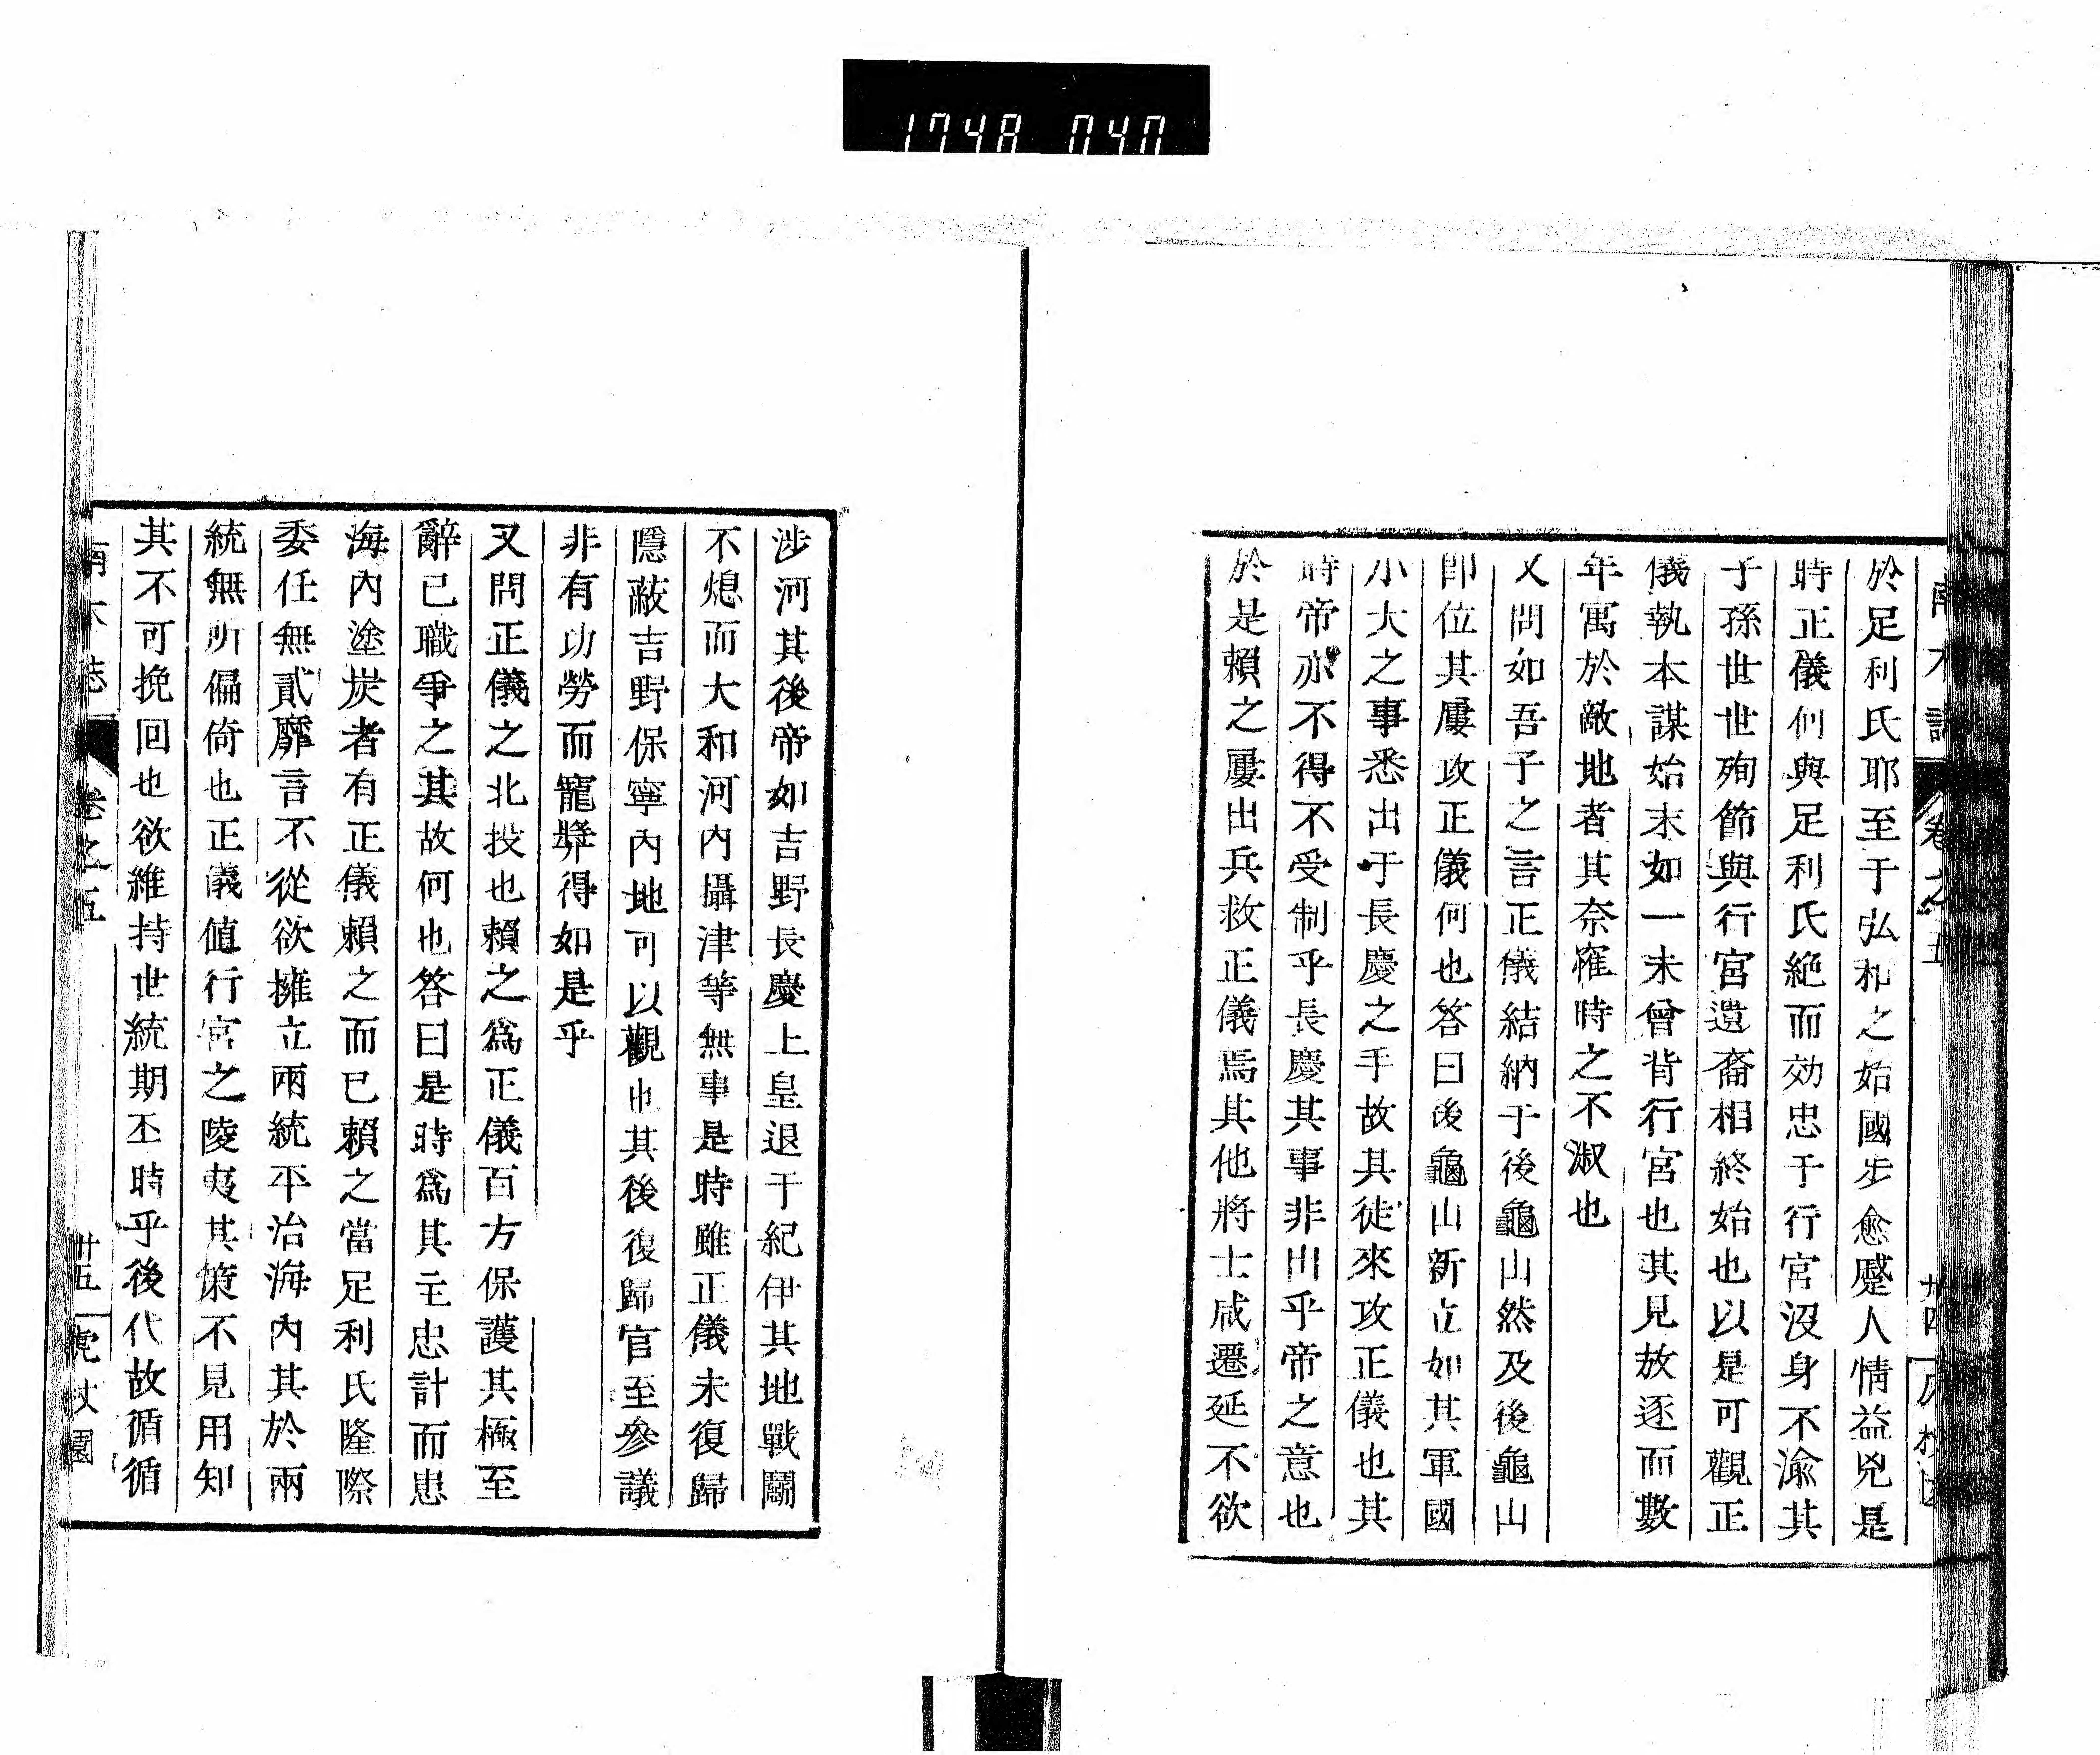 1748 040
於足利氏耶至于弘和之始國步愈蹙人情益兇是
時正儀們與足利氏絶而効忠于行宮沒身不渝其
子孫世世殉節與行宮遺裔相終始也以是可觀正
儀執本謀始末如一未曾背行宮也其見放逐而數
年寓於敵地者其奈窄時之不淑也
又問如吾子之言正儀結納于後龜山然及後龜山
即位其屢攻正儀何也答曰後龜山新立如其軍國
小大之事悉出于長慶之手故其徒來攻正儀也其
時帝亦不得不受制乎長慶其事非出乎帝之意也
於是賴之屢出兵救正儀焉其他將士咸遷延不欲
涉河其後帝如吉野長慶上皇退于紀伊其地戰鬭
不熄而大和河內攝津等無事是時雖正儀未復歸
隱蔽吉野保寧內地可以觀也其後復歸官至參議
非有功勞而寵奬得如是乎
又問正儀之北投也賴之爲正儀百方保護其極至
辭已職爭之其故何也答曰是時爲其主忠計而患
海內塗炭者有正儀賴之而已賴之當足利氏隆際
委任無貳靡言不從欲擁立兩統平治海內其於兩
統無所偏倚也正儀値行宮之陵夷其策不見用知
其不可挽回也欲維持世統期丕時乎後代故循循
南木誌 卷之五 廿五 虎杖園